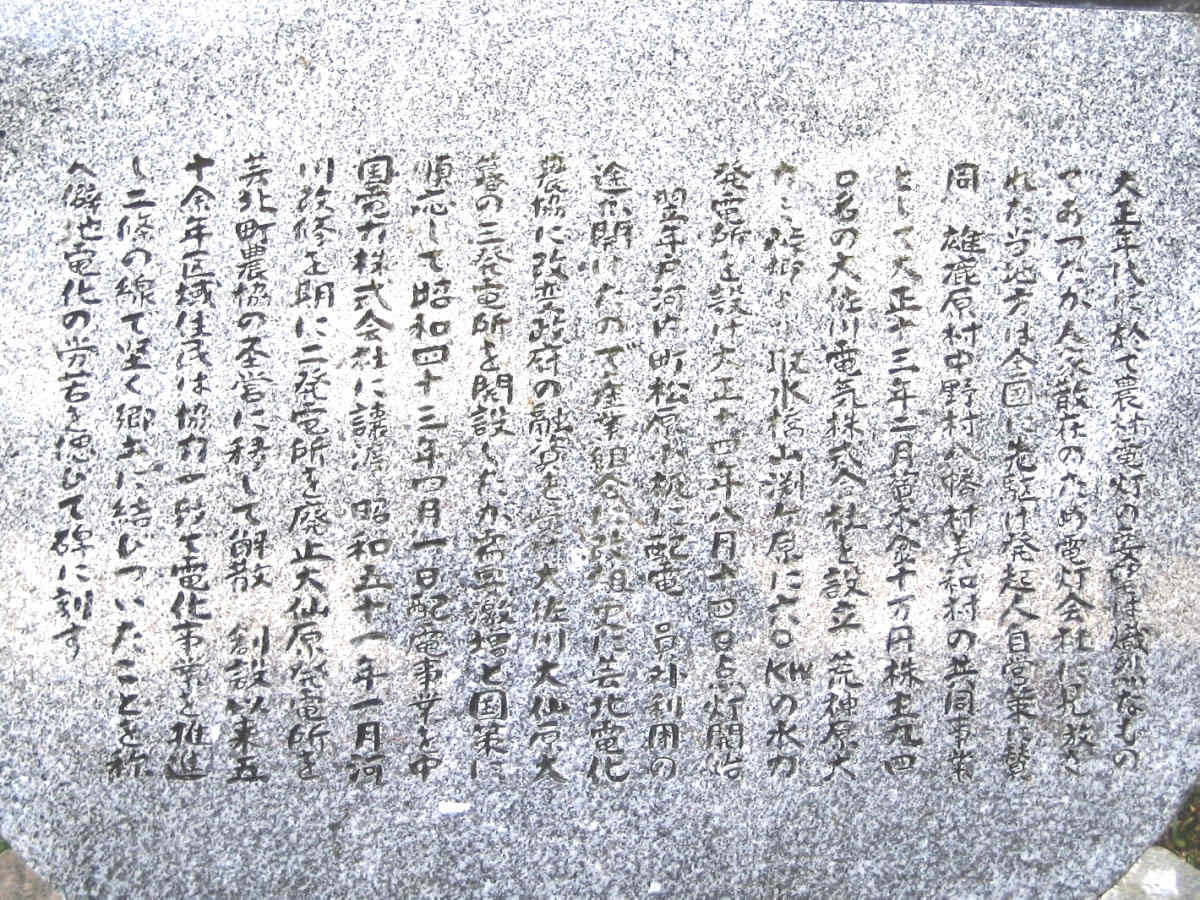 大正年代に於て農村電灯の要望は熾烈なもの
であったが人家散在のため電灯会社に見放さ
れた当地方は全国に先駆け発起人自営策に賛
同 雄鹿原村中野村八幡村美和村の共同事業
として大正十三年二月資本金十万円株主九四
〇名の大佐川電気株式会社を設立 荒神原大
た 水橋山渕ヶ原に六〇KWの水力
発電所を設け大正十四年八月十四日点灯開始
翌年戸河内町松原 梶に配電 員外利用の
途が開けたので産業組合に改組更に芸北電化
農協に改変政府の融資を 大佐川大仙原大
暮の三発電所を開設したが需要激増と国策に
順応して昭和四十三年四月一日配電事業を中
国電力株式会社に譲渡 昭和五十一年一月河
川改修を期に二発電所を廃止大仙原発電所を
芸北町農協の経営に移して解散 創設以来五
十余年区域住民は協力一致で電化事業を推進
し二條の線で堅く郷土に結びついたことを称
へ僻地電化の労苦を偲びて碑に刻す